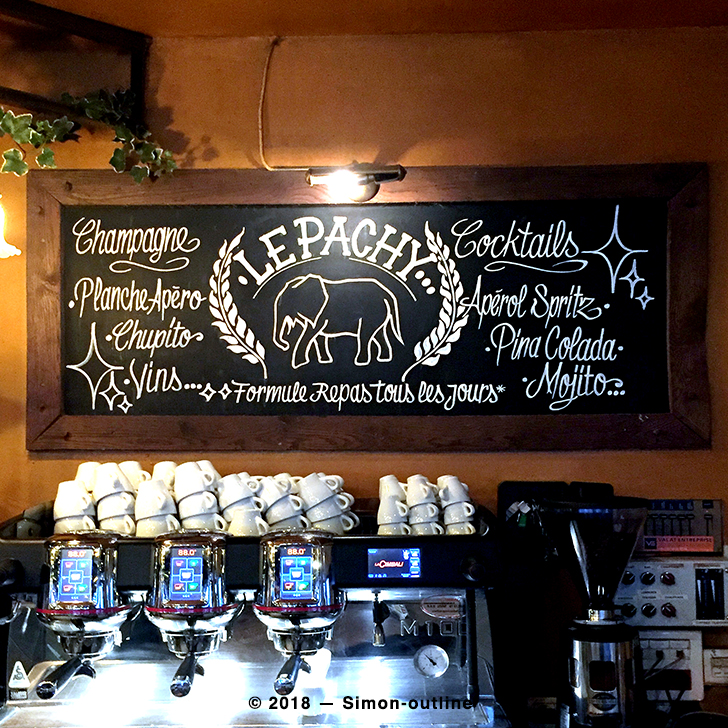 Champagne
•Planche Apéro
•Chupito•
•Vins...
•LE PACHY...
Formule Repas tous les jours*
Cocktails
Apérol Spritz•
•Pina Colada•
•Mojito...
88.0°
88.0°
88.0°
LACIMBALI
M100
© 2018 — Simon-outline